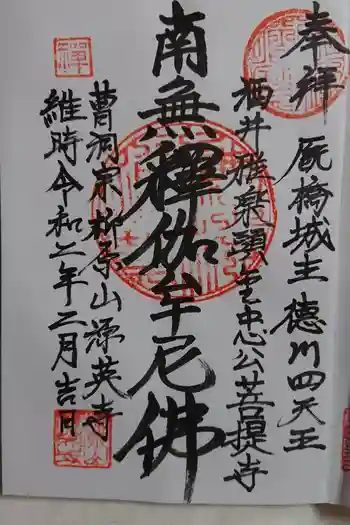 奉拝
厩橋城主徳川四天王
酒井雅楽頭重忠公菩提寺
南無釋伽牟尼佛
曹洞宗柳原山源英寺
維時令和二年二月吉日
禅